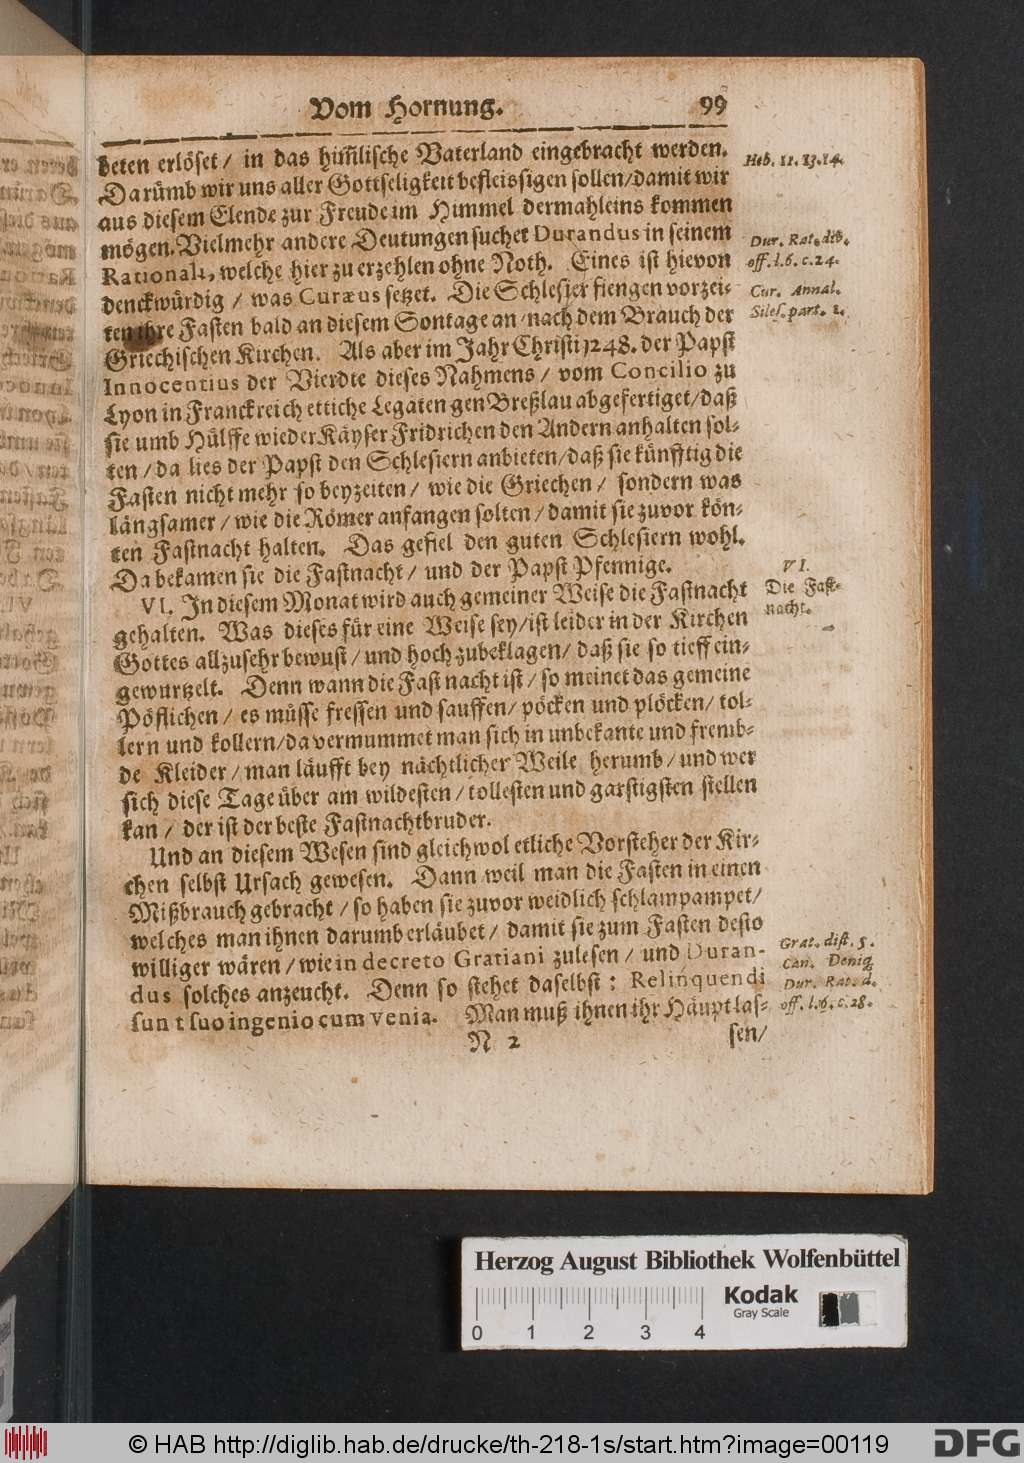 Vom Hornung. 99
beten erlöset/ in das him̃lische Vaterland eingebracht werden.
Darümb wir uns aller Gottseligkeit befleissigen sollen/damit wir
aus diesem Elende zur Freude im Himmel dermahleins kommen
mögen. Vielmehr andere Deutungen suchet Durandus in seinem
Rationali, welche hier zu erzehlen ohne Noth. Eines ist hievon
denckwürdig / was Curæus setzet. Die Schlesier fiengen vorzei-
ten ihre Fasten bald an diesem Sontage an/nach dem Brauch der
Griechischen Kirchen. Als aber im Jahr Christi 1248. der Papst
Innocentius der Vierdte dieses Nahmens / vom Concilio zu
Lyon in Franckreich ettiche Legaten gen Breßlau abgefertiget/daß
sie umb Hülffe wieder Käyser Fridrichen den Andern anhalten sol-
ten / da lies der Papst den Schlesiern anbieten/daß sie künfftig die
Fasten nicht mehr so beyzeiten / wie die Griechen / sondern was
längsamer / wie die Römer anfangen solten / damit sie zuvor kön-
ten Fastnacht halten. Das gefiel den guten Schlesiern wohl.
Da bekamen sie die Fastnacht / und der Papst Pfennige.
VI. In diesem Monat wird auch gemeiner Weise die Fastnacht
gehalten. Was dieses für eine Weise sey/ist leider in der Kirchen
Gottes allzusehr bewust / und hoch zubeklagen/ daß sie so tieff ein-
gewurtzelt. Denn wann die Fastnacht ist / so meinet das gemeine
Pöflichen / es müsse fressen und sauffen/ pöcken und plöcken/ tol-
lern und kollern/da vermummet man sich in unbekante und fremb-
de Kleider / man läufft bey nächtlicher Weile herumb / und wer
sich diese Tage über am wildesten / tollesten und garstigsten stellen
kan / der ist der beste Fastnachtbruder.
Und an diesem Wesen sind gleichwol etliche Vorsteher der Kir-
chen selbst Ursach gewesen. Dann weil man die Fasten in einen
Mißbrauch gebracht / so haben sie zuvor weidlich schlampampet/
welches man ihnen darumb erläubet / damit sie zum Fasten desto
williger wären / wie in decreto Gratiani zulesen / und Duran-
dus solches anzeucht. Denn so stehet daselbst: Relinquendi
sunt suo ingenio cum venia. Man muß ihnen ihr Häupt las-
N 2 sen/
Heb. 11. 13. 14.
Dur. Rat. div.
off. l. 6. c. 24.
Cur. Annal.
Siles. part. 2.
VI.
Die Fast-
nacht.
Grat. dist. 5.
Can. Deniq
Dur. Rat. d.
off. l. 6. c. 28.
Herzog August Bibliothek Wolfenbüttel
Kodak
Gray Scale
0 1 2 3 4
© HAB http://diglib.hab.de/drucke/th-218-1s/start.htm?image=00119
DFG